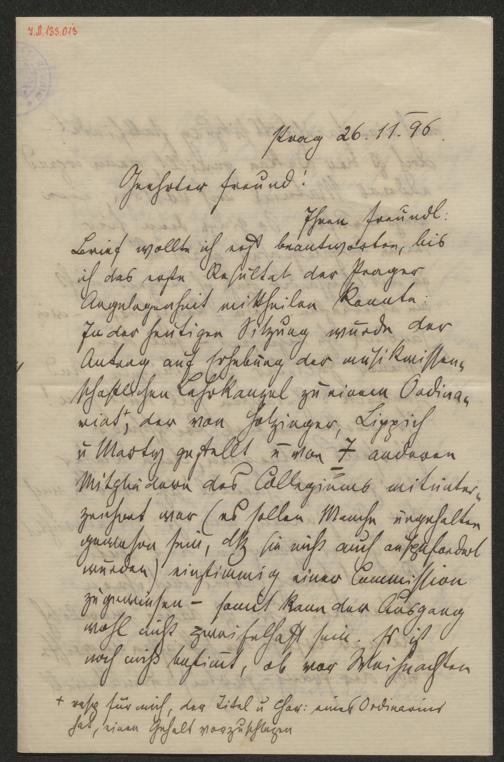 Prag 26.11.96.
Geehrter Freund!
Ihren freundl:
Brief wollte ich erst beantworten, bis
ich das erste Resultat der Prager
Angelegenheit mittheilen konnte:
In der heutigen Sitzung wurde der
Antrag auf Erhebung der musikwissen-
schaftlichen Lehrkanzel zu einem Ordina-
riat+, der von Holzinger, Lippich
u Marty gestellt u von 7 anderen
Mitgliedern des Collegiums mitunter-
zeichnet war (es sollen Manche ungehalten
gewesen sein, dß sie nicht auch aufgefordert
wurden) einstimmig einer Commission
zugewiesen – somit kann der Ausgang
wohl nicht zweifelhaft sein. Es ist
noch nicht bestimmt, ob vor Weihnachten
+ resp für mich, der Titel u Char: eines Ordinarius
hat, einen Gehalt vorzuschlagen